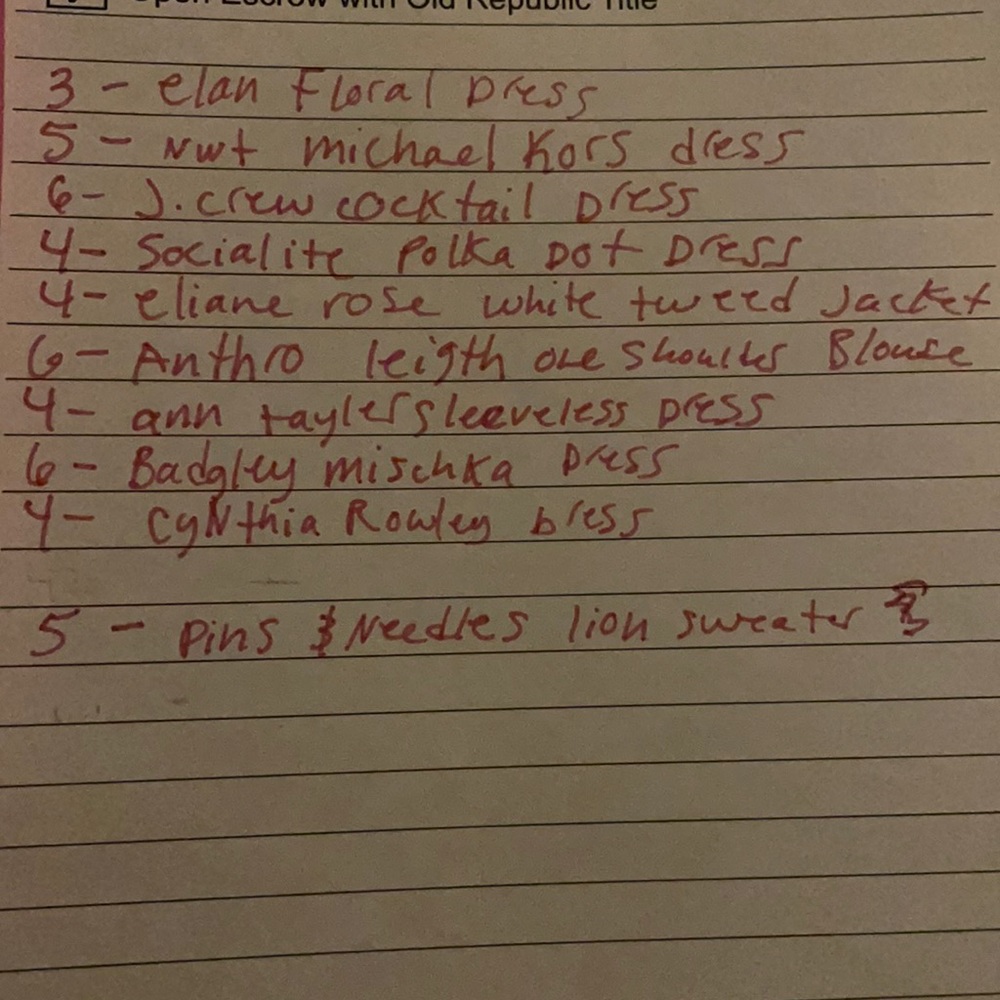 Open Escrow with Old Republic Title
3 - elan Floral Dress
5 - NWT michael Kors dress
6- J.crew cocktail Dress
4- Socialite Polka Dot Dress
4- eliane rose white tweed Jacket
6- Anthro leigth one Shoulder Blouse
4- ann tayler sleeveless Dress
6- Badgley mischka Dress
4- CyNthia Rowley Dress
5 - Pins & Needles lion sweater